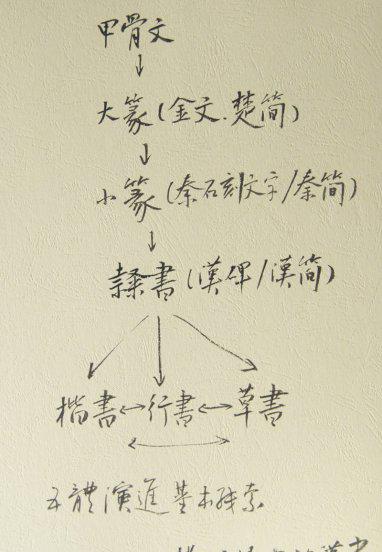 甲骨文
↓
大篆(金文.楚简)
↓
小篆(秦石刻文字/秦简)
↓
隸書(漢碑/漢简)
楷書↔行書↔草書
五體演進基本线索